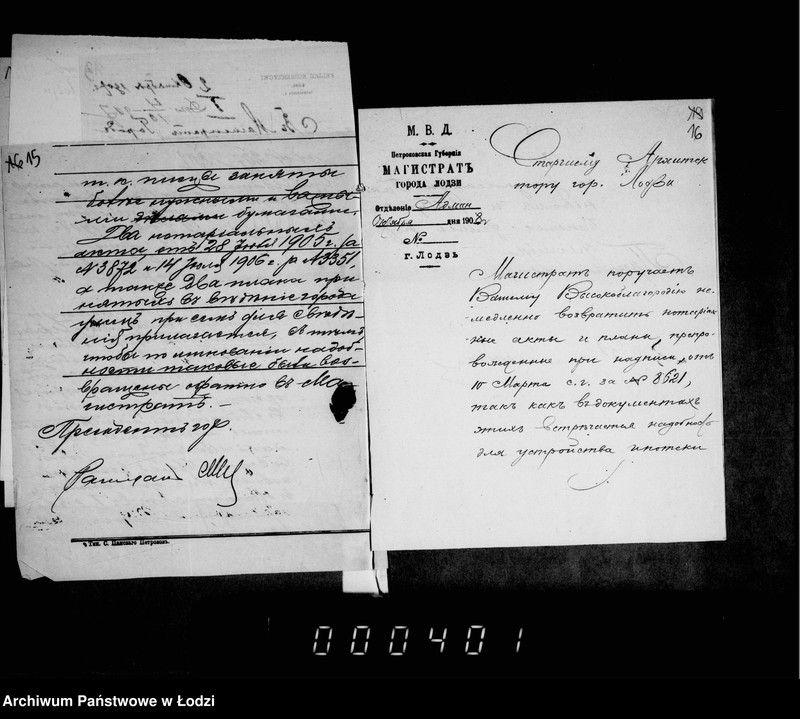 15
т. к. пицы заняты
более нужными и
бумагами.
Два нотаріальныхъ
акта, отъ 28 Іюня 1905 г. за
№ 3872 и 14 Іюля 1906 г. за № 3351,
а также два плана при
нятыхъ въ вѣдѣніе города
улицъ при семъ для свѣдѣ-
нія прилагается, съ тѣмъ
чтобы по минованіи надоб-
ности таковые были воз-
вращены обратно въ Ма-
гистратъ. —
Президентъ гор.
Тип. С. Панскаго Петроковъ.
16
М. В. Д.
Петроковская Губернія
МАГИСТРАТЪ
ГОРОДА ЛОДЗИ
Отдѣленіе Админ
Октября дня 1908 г.
№
г. Лодзь
Старшему Архитек
тору гор. Лодзи
Магистратъ поручаетъ
Вашему Высокоблагородію не-
медленно возвратить нотаріаль
ные акты и планы, препро-
вожденные при надписи отъ
10 Марта с. г. за № 8521,
такъ какъ въ документахъ
этихъ встрѣчается надобность
для устройства ипотеки
000401
Archiwum Państwowe w Łodzi